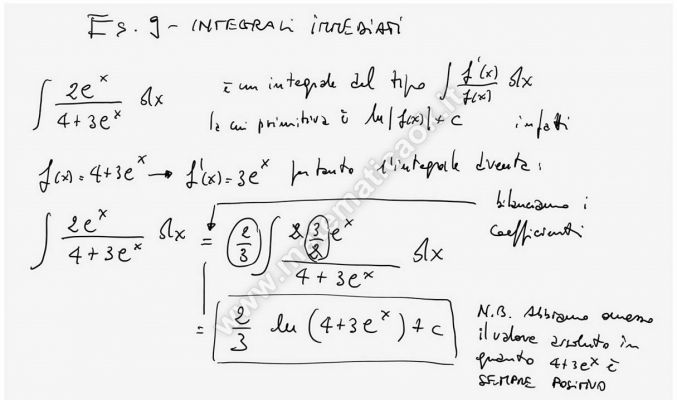 Es. 9 - INTEGRALI IMMEDIATI
∫ 2e^x / (4+3e^x) dx è un integrale del tipo ∫ f'(x)/f(x) dx
la cui primitiva è ln|f(x)|+c infatti
f(x)=4+3e^x → f'(x)=3e^x pertanto l'integrale diventa:
bilanciamo i
coefficienti
∫ 2e^x / (4+3e^x) dx = 2/3 ∫ 2 3/2 e^x / (4+3e^x) dx
= 2/3 ln (4+3e^x)+c
N.B. Abbiamo omesso
il valore assoluto in
quanto 4+3e^x è
SEMPRE POSITIVO
www.matematicaok.it